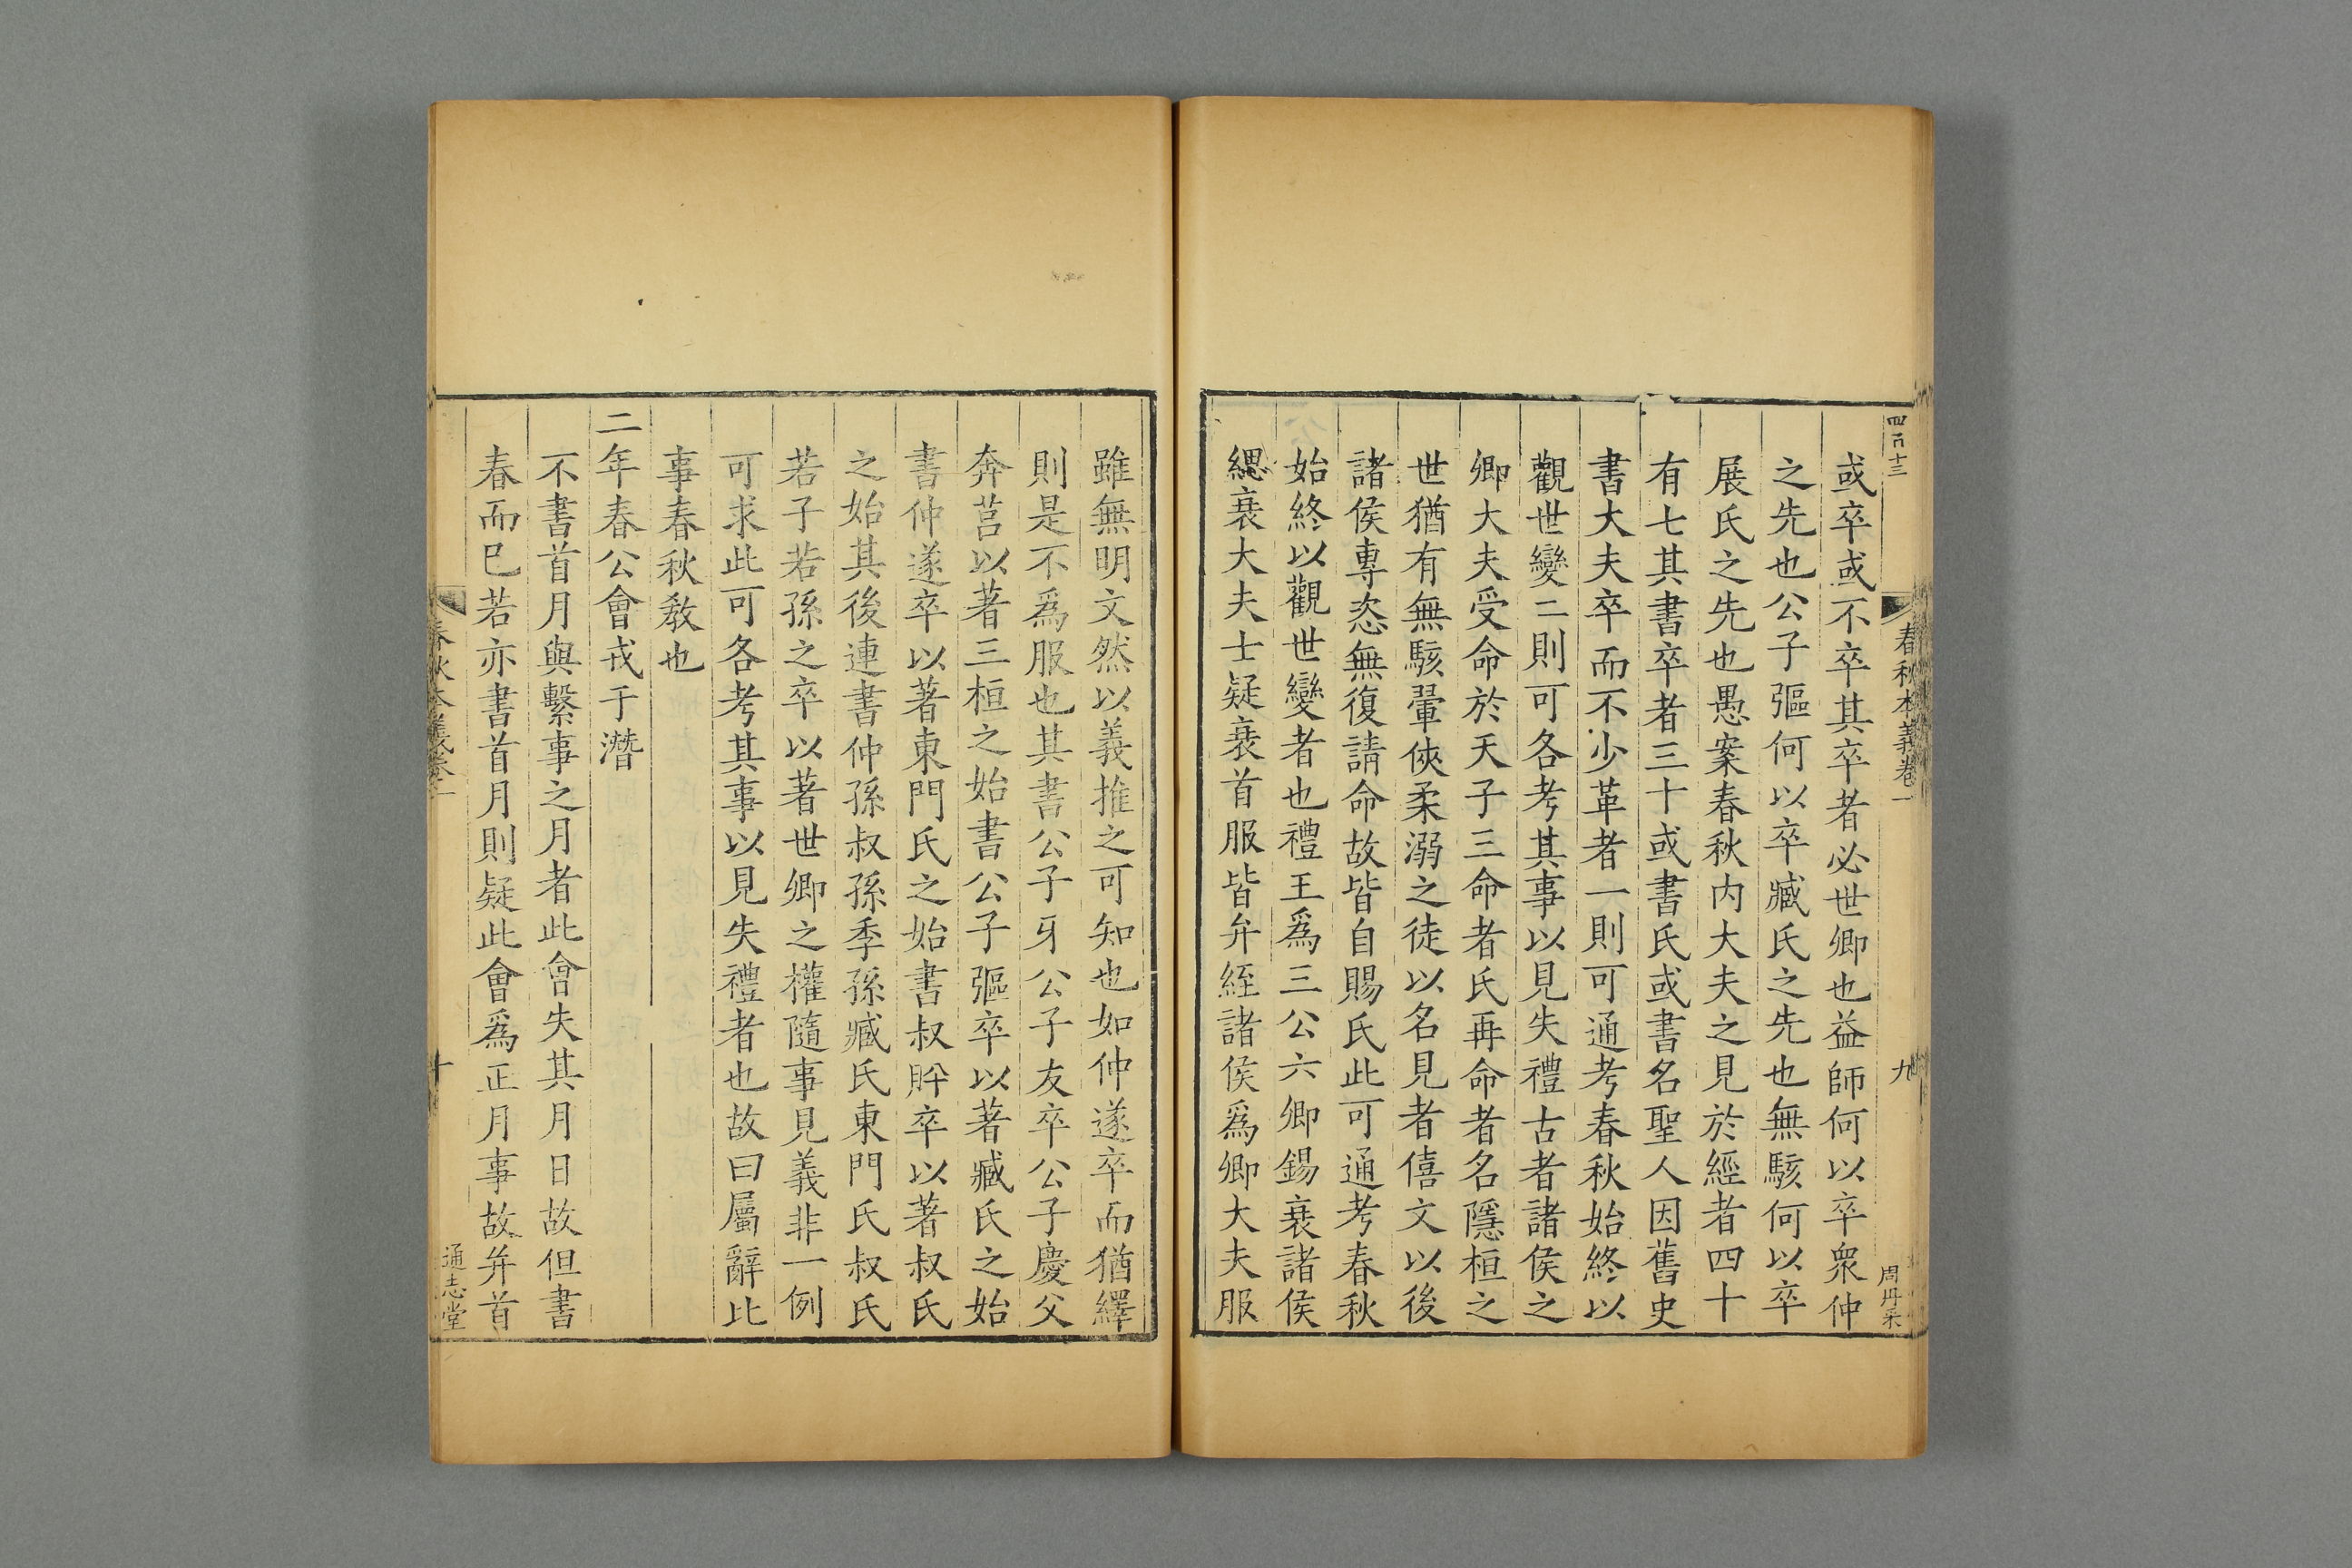 四百十三
春秋本義卷一
九
周丹采
或卒或不卒其卒者必世卿也益師何以卒衆仲
之先也公子彄何以卒臧氏之先也無駭何以卒
展氏之先也愚案春秋内大夫之見於經者四十
有七其書卒者三十或書氏或書名聖人因舊史
書大夫卒而不少革者一則可通考春秋始終以
觀世變二則可各考其事以見失禮古者諸侯之
卿大夫受命於天子三命者氏再命者名隱桓之
世猶有無駭翬俠柔溺之徒以名見者僖文以後
諸侯專恣無復請命故皆自賜氏此可通考春秋
始終以觀世變者也禮王爲三公六卿錫衰諸侯
緦衰大夫士疑衰首服皆弁絰諸侯爲卿大夫服
雖無明文然以義推之可知也如仲遂卒而猶繹
則是不爲服也其書公子牙公子友卒公子慶父
奔莒以著三桓之始書公子彄卒以著臧氏之始
書仲遂卒以著東門氏之始書叔肸卒以著叔氏
之始其後連書仲孫叔孫季孫臧氏東門氏叔氏
若子若孫之卒以著世卿之權隨事見義非一例
可求此可各考其事以見失禮者也故曰屬辭比
事春秋敎也
二年春公會戎于潛
不書首月與繫事之月者此會失其月日故但書
春而已若亦書首月則疑此會爲正月事故并首
春秋本義卷一
十
通志堂